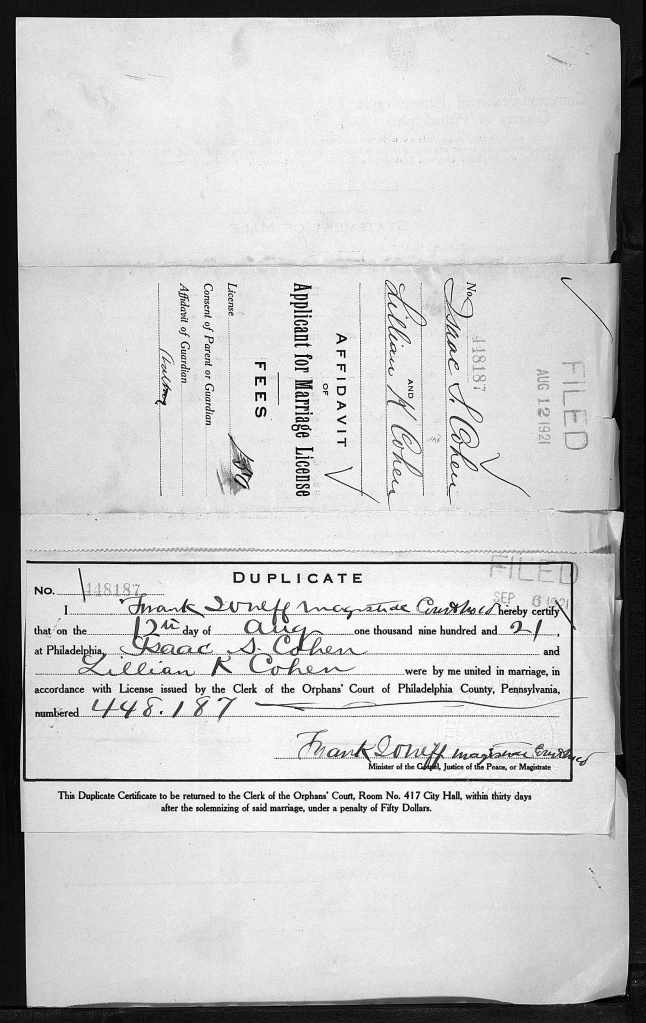 FILED
AUG 12 1921
No. 448187
Isaac S. Cohen
AND
Lillian K Cohen
AFFIDAVIT
OF
Applicant for Marriage License
FEES
License
Consent of Parent or Guardian
Affidavit of Guardian
DUPLICATE
FILED
SEP 6 1921
No. 448187
I Frank Magistrate hereby certify
that on the 12th day of Aug one thousand nine hundred and 21,
at Philadelphia, Isaac S. Cohen and
Lillian K Cohen were by me united in marriage, in
accordance with License issued by the Clerk of the Orphans' Court of Philadelphia County, Pennsylvania,
numbered 448.187
Frank Magistrate
Minister of the Gospel, Justice of the Peace, or Magistrate
This Duplicate Certificate to be returned to the Clerk of the Orphans' Court, Room No. 417 City Hall, within thirty days
after the solemnizing of said marriage, under a penalty of Fifty Dollars.